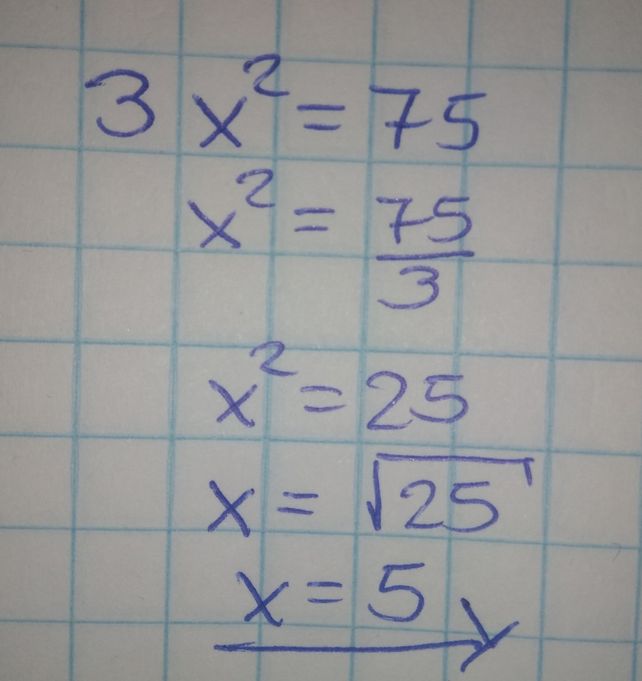 3x² = 75
x² = 75/3
x² = 25
x = √25
x = 5